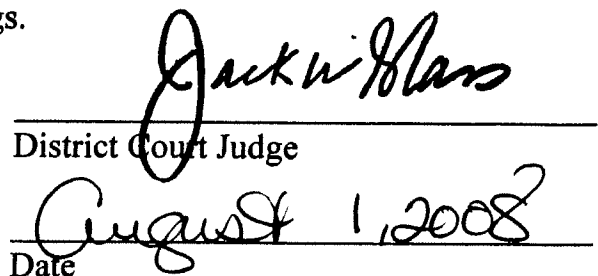 gs.
Jack W Glass
District Court Judge
August 1, 2008
Date